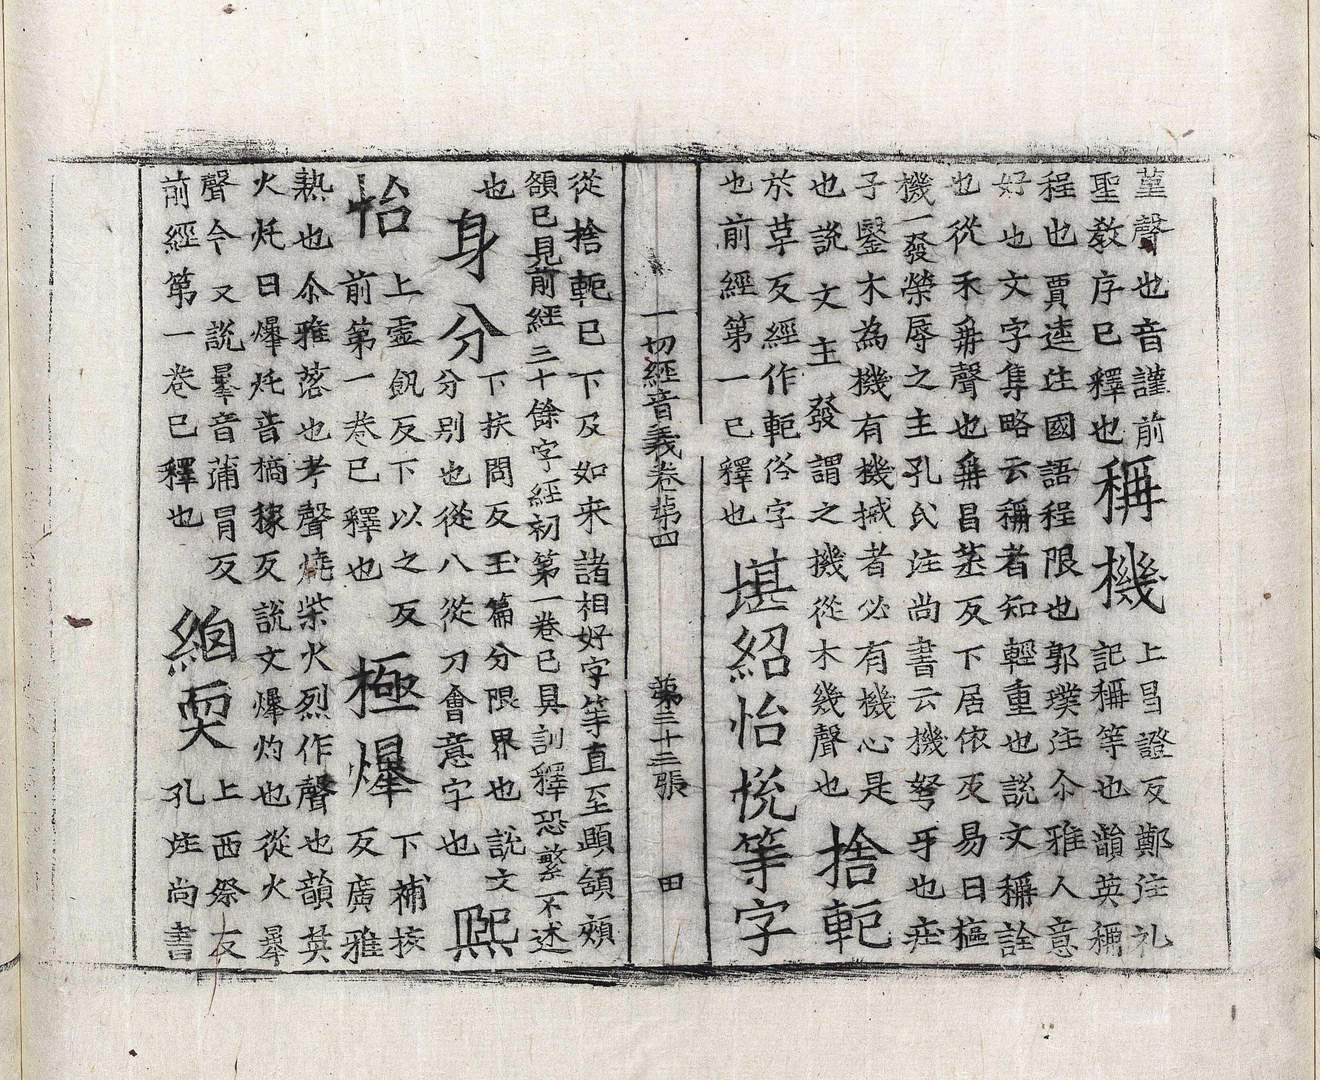 堇聲也音謹前
聖教序已釋也
稱機
上昌證反鄭注礼
記稱等也韻英稱
程也賈逵注國語程限也郭璞注尒雅人意
好也文字集略云稱者知輕重也說文稱詮
也從禾爯聲也爯昌蒸反下居依反易曰樞
機一發榮辱之主孔氏注尚書云機弩牙也莊
子鑿木為機有機械者必有機心是
也說文主發謂之機從木幾聲也
捨軶
於革反經作軛俗字
也前經第一已釋也
堪紹怡悅等字
一切經音義卷第四 第三十三張 田
從捨軶已下及如来諸相好字等直至顋頷頰
頟已見前經三十餘字經初第一卷已具訓釋恐繁不述
也
身分
下扶問反玉篇分限界也說文
分別也從八從刀會意字也
熙
怡
上虛飢反下以之反
前第一卷已釋也
極爆
下補挍
反廣雅
熱也尒雅落也考聲燒柴火烈作聲也韻英
火烞曰爆烞音㩧說文爆灼也從火㬥
聲今又說㬥音蒲冒反
前經第一卷已釋也
絈耎
上西祭反
孔注尚書